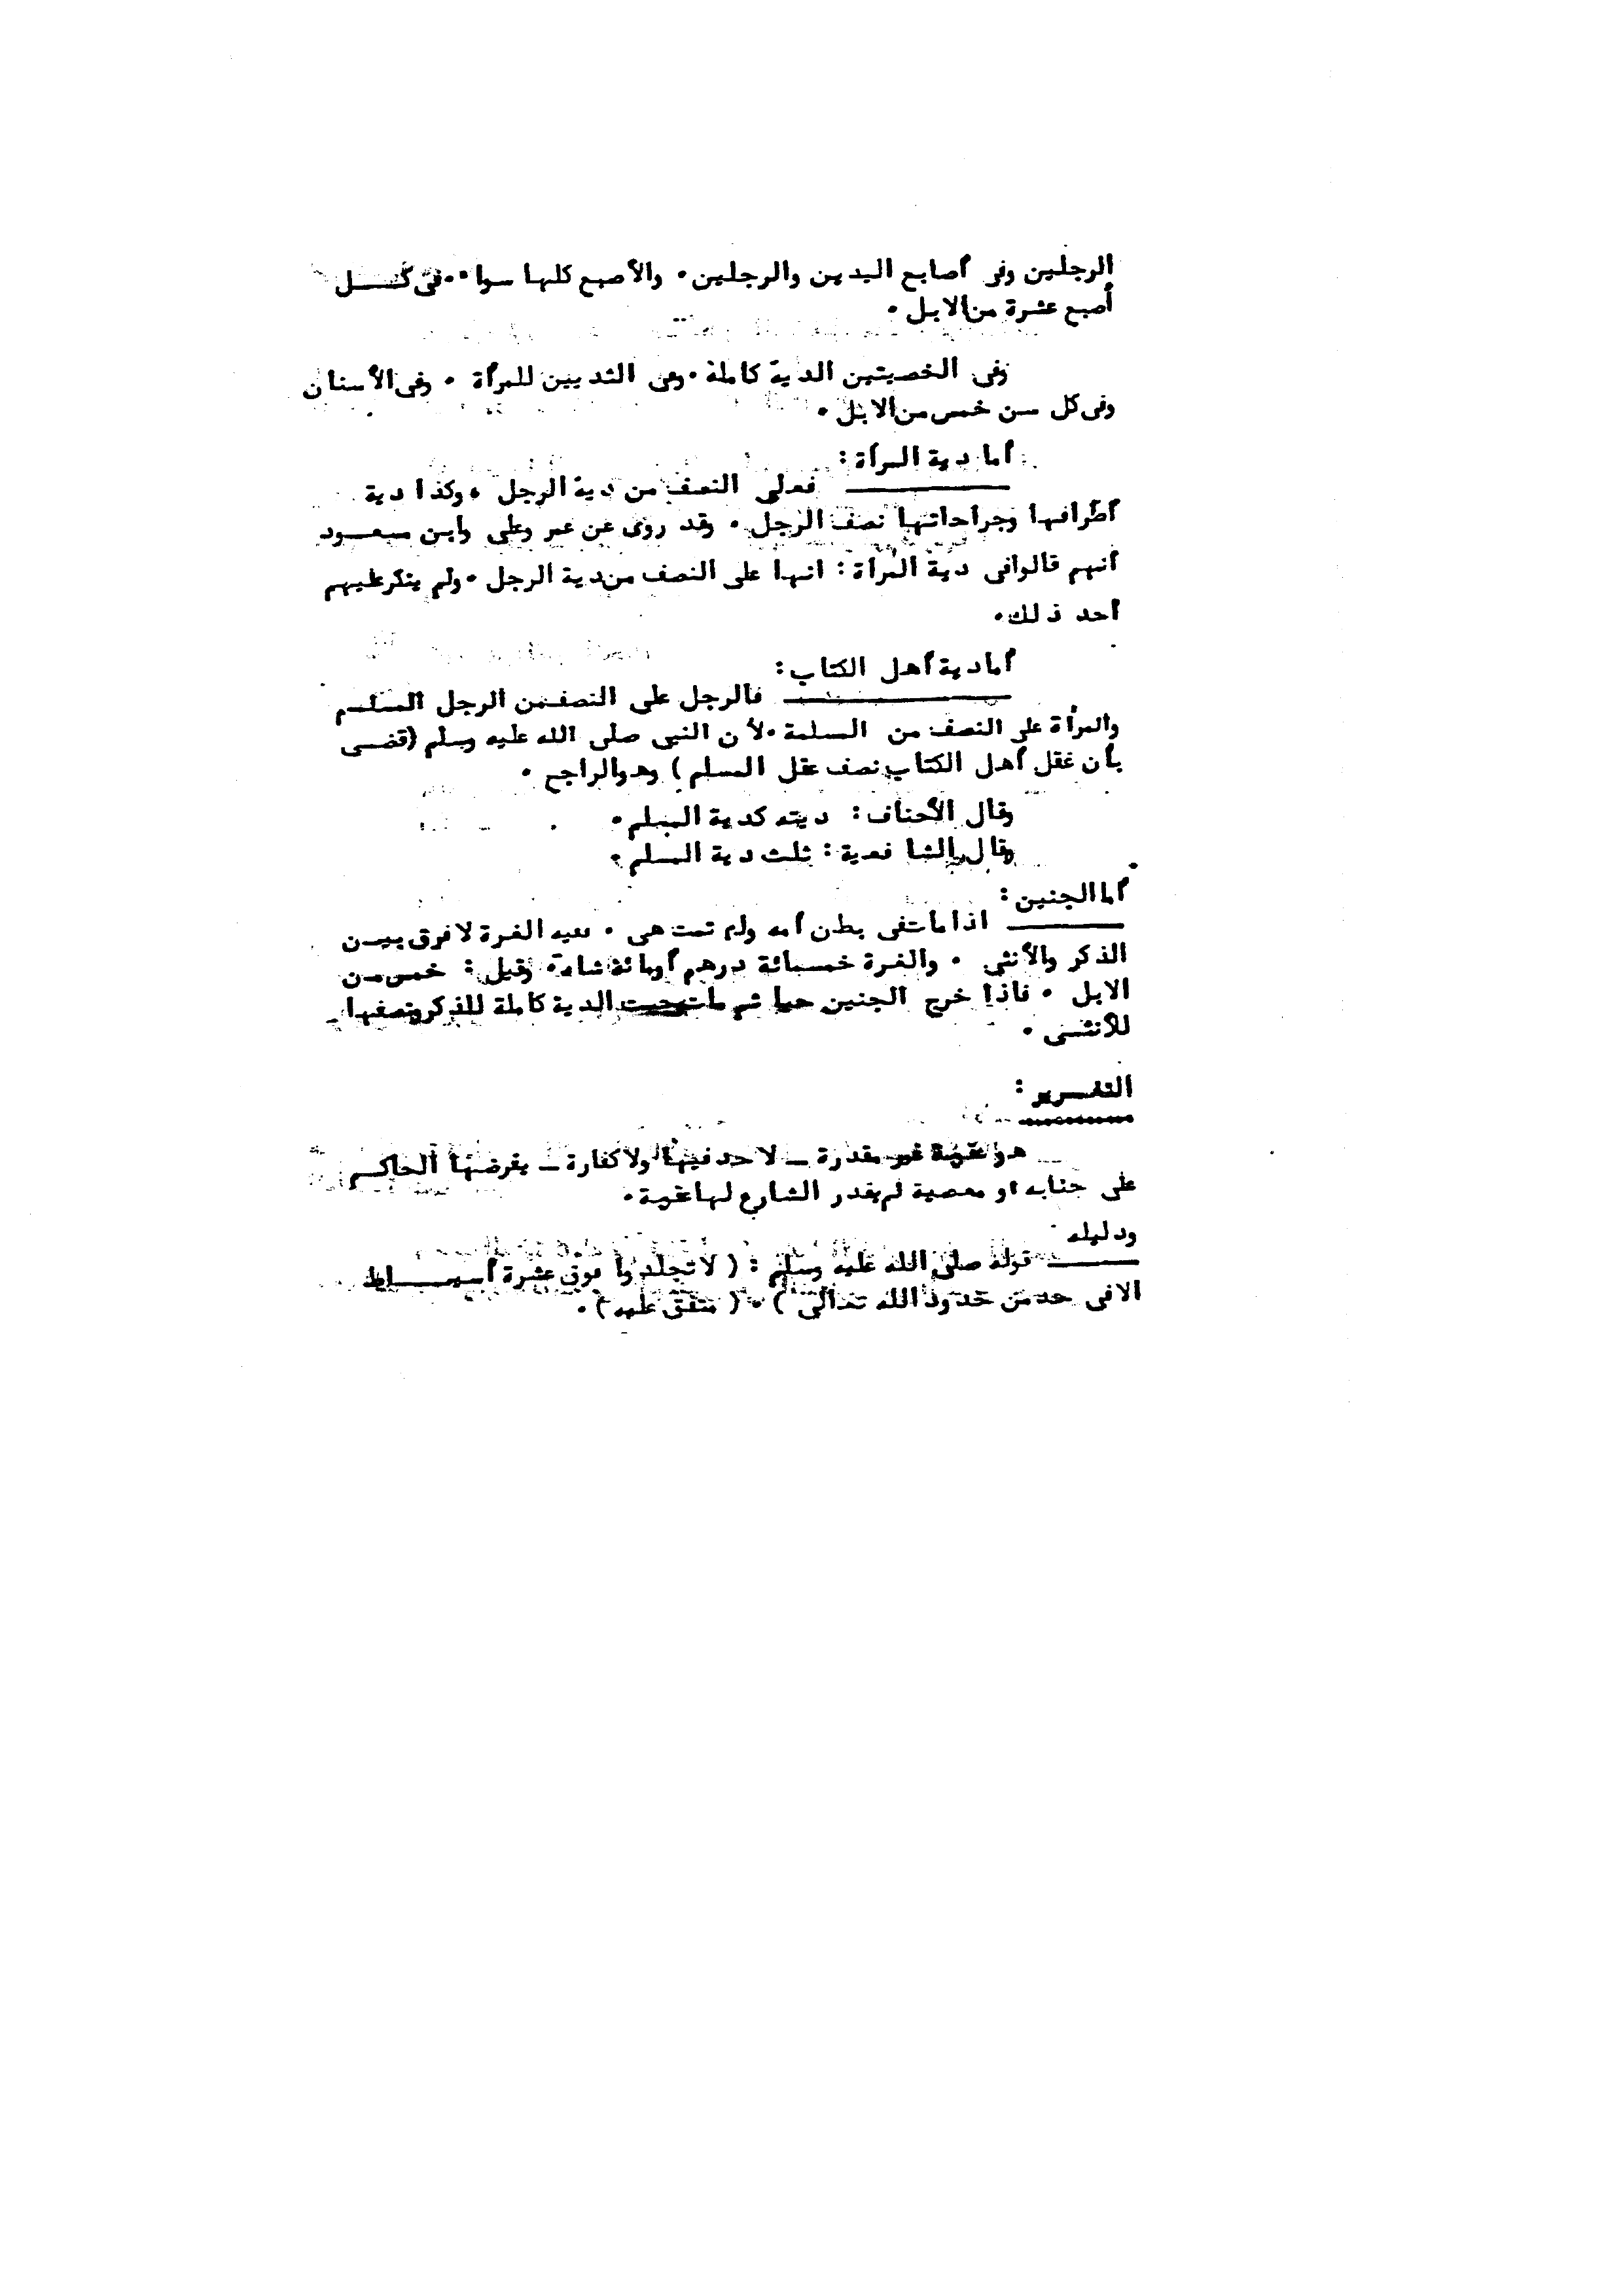 الرجلين وفى أصابع اليدين والرجلين. والأصبع كلها سواء. فى كـــل
أصبع عشرة من الابل.
وفى الخصيتين الدية كاملة. وفى الثديين للمرأة. وفى الأسنان
وفى كل سن خمس من الابل.
أما دية المرأة:
فعلى النصف من دية الرجل، وكذا دية
أطرافها وجراحاتها نصف الرجل. وقد روى عن عمر وعلى وابن مسعـــود
أنهم قالوا فى دية المرأة: انها على النصف من دية الرجل. ولم ينكر عليهم
أحد ذلك.
أما دية أهل الكتاب:
فالرجل على النصف من الرجل المسلــم
والمرأة على النصف من المسلمة. لأن النبى صلى الله عليه وسلم (قضــى
بأن عقل أهل الكتاب نصف عقل المسلم) وهو الراجح.
وقال الأحناف: ديته كدية المسلم.
وقال الشافعية: ثلث دية المسلم.
أما الجنين:
اذا مات فى بطن أمه ولم تمت هى. ففيه الغرة لا فرق بيــن
الذكر والأنثى. والغرة خمسمائة درهم أو مائة شاة. وقيل: خمس مــن
الابل. فاذا خرج الجنين حيا ثم مات وجبت الدية كاملة للذكر ونصفها
للأنثــى.
التعــزير:
هو عقوبة غير مقدرة – لا حد فيها ولا كفارة – يفرضها الحاكــم
على جناية او معصية لم يقدر الشارع لها عقوبة.
ودليله
قوله صلى الله عليه وسلم: (لا تجلدوا فوق عشرة أسيـــــاط
الا فى حد من حدود الله تعالى). (متفق عليه).